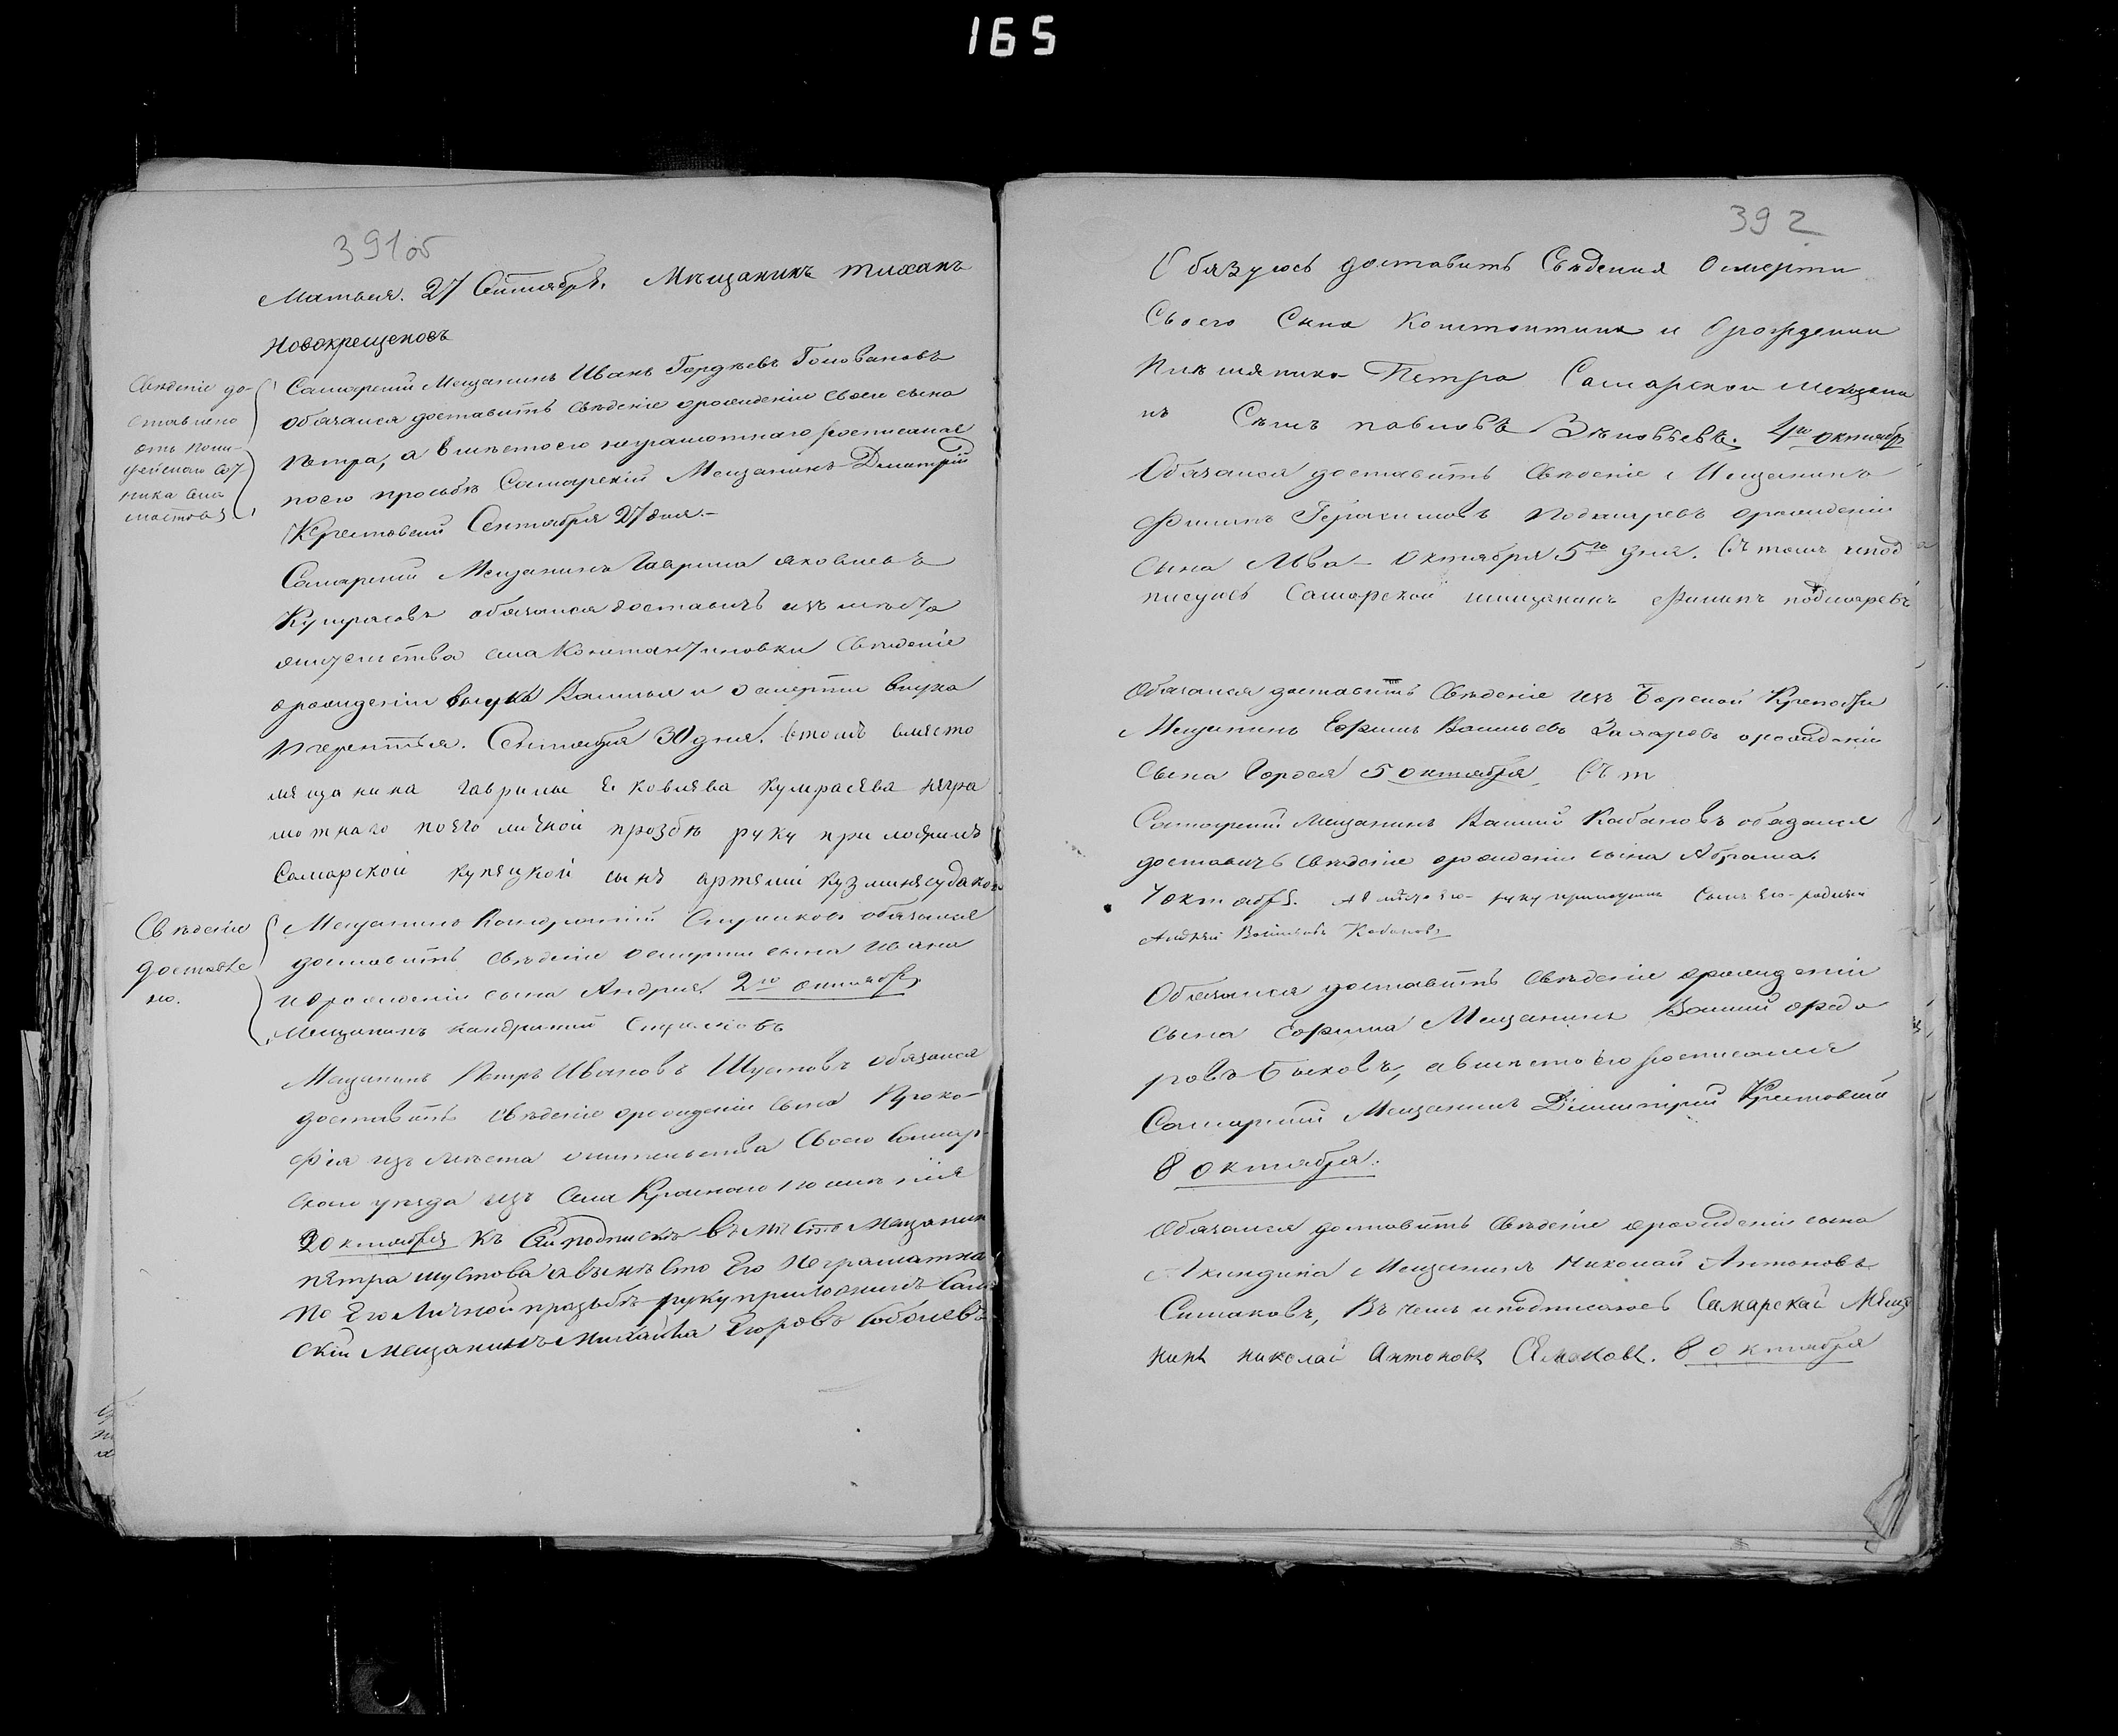 165
391об
Матвея. 27 Сентября. Мѣщанинъ тиханъ
Новокрещеновъ
Свѣдение до-
ставлено
отъ поли-
цейскаго сот
ника
Самарский Мещанинъ Иванъ Гордѣевъ Головановъ
обязался доставить свѣдѣние орождении своего сына
Петра, а вместо его неграмотнаго росписался
поего просьбѣ Самарский Мещанинъ Дмитрий
Крестовский Сентября 27 дня.-
Самарский Мещанинъ Гаврила яковлевъ
обязался доставить изъ места
жительства села Константиновки Свѣдение
орождении внука Василья и осмерти внука
Терентья. Сентября 30 дня. втомъ вместо
мящанина гаврилы Яковлява кумрасява нягра
мотнаго пояго личной прозбѣ руку приложилъ
Самарской купяцкой сынъ артямий кузминъ судаков
Свѣдение
доставле
но.
Мещанинъ Кондратий обязался
доставить свѣдение осмерти сына Ивана
и орождении сына Андрея. 2го октября,
Мещанинъ кандратий
Мещанинъ Петръ Ивановъ Шустовъ обязался
доставить свѣдение орождении сына Проко-
фия изъ места жительства Своего Самар-
скаго уезда изъ села Краснаго поселения
2 октября къ Сей подпискѣ вместо Мещанин
пятра шустова авместо Его Неграматна
по Его Личной празьбѣ руку приложилъ Сама
ский Мещанинъ Михайла Егоровъ Соболевъ
392
Обязуюсь доставить Свѣдения Осмерти
Своего Сына Константина и Орождении
Петра Самарской мещани
нъ павловъ Зѣновьевъ. 4го октябр
Обязался доставить Свѣдение Мещанинъ
Филипъ Герасимовъ Подмаревъ орождении
сына Льва - Октября 5го дня. Въ томъ ипод
писуюсь Самарской мищанинъ Филипъ подмаревъ
Обязался доставить Свѣдение изъ Борской Крепости
Мещанинъ Ефимъ Васильевъ Захаровъ орождении
сына Гордея 5 октября. Въ т
Самарский Мещанинъ Василий Кабановъ обязался
доставить Свѣдение орождении сына Абрама
7 октября. А вместо его руку приложилъ Сынъ его родной
Андрей Васильевъ Кабановъ
Обязался доставить Свѣдение орождении
сына Ефима Мещанинъ Василий Федо
ровъ Быковъ, авместо его росписался
Самарский Мещанинъ Димитрий Крестовский
8 октября.
Обязался доставить Свѣдение орождении сына
Акиндина Мещанинъ Николай Антоновъ
Симаковъ, Въ чемъ иподписаюсь Самарскай Мѣщ
нинъ николай Антоновъ Симаковъ. 8 октября